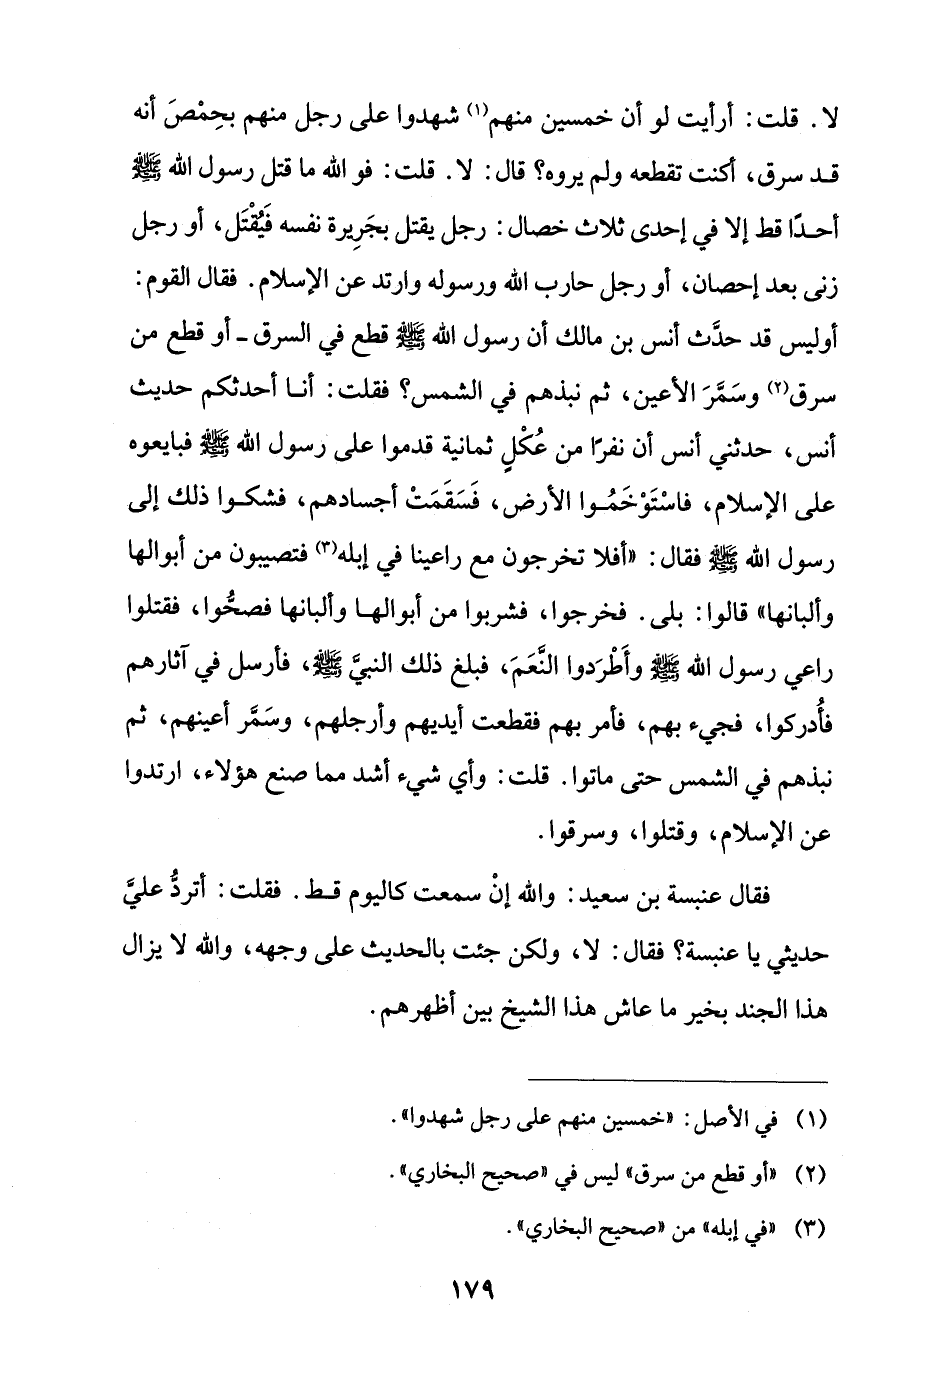 لا. قلت: أرأيت لو أن خمسين منهم(١) شهدوا على رجل منهم بحِمْصَ أنه
قد سرق، أكنت تقطعه ولم يروه؟ قال: لا. قلت: فو الله ما قتل رسول الله ﷺ
أحدًا قط إلا في إحدى ثلاث خصال: رجل يقتل بجَرِيرة نفسه فَيُقْتَل، أو رجل
زنى بعد إحصان، أو رجل حارب الله ورسوله وارتد عن الإسلام. فقال القوم:
أوليس قد حدَّث أنس بن مالك أن رسول الله ﷺ قطع في السرق - أو قطع من
سرق(٢) وسَمَّرَ الأعين، ثم نبذهم في الشمس؟ فقلت: أنا أحدثكم حديث
أنس، حدثني أنس أن نفرًا من عُكْلٍ ثمانية قدموا على رسول الله ﷺ فبايعوه
على الإسلام، فاسْتَوْخَمُوا الأرض، فَسَقَمَتْ أجسادهم، فشكوا ذلك إلى
رسول الله ﷺ فقال: «أفلا تخرجون مع راعينا في إبله(٣) فتصيبون من أبوالها
وألبانها» قالوا: بلى. فخرجوا، فشربوا من أبوالها وألبانها فصحُّوا، فقتلوا
راعي رسول الله ﷺ وأَطْرَدوا النَّعَمَ، فبلغ ذلك النبيَّ ﷺ، فأرسل في آثارهم
فأُدركوا، فجيء بهم، فأمر بهم فقطعت أيديهم وأرجلهم، وسَمَّر أعينهم، ثم
نبذهم في الشمس حتى ماتوا. قلت: وأي شيء أشد مما صنع هؤلاء، ارتدوا
عن الإسلام، وقتلوا، وسرقوا.
فقال عنبسة بن سعيد: والله إنْ سمعت كاليوم قط. فقلت: أتردُّ عليَّ
حديثي يا عنبسة؟ فقال: لا، ولكن جئت بالحديث على وجهه، والله لا يزال
هذا الجند بخير ما عاش هذا الشيخ بين أظهرهم.
(١) في الأصل: «خمسين منهم على رجل شهدوا».
(٢) «أو قطع من سرق» ليس في «صحيح البخاري».
(٣) «في إبله» من «صحيح البخاري».
١٧٩